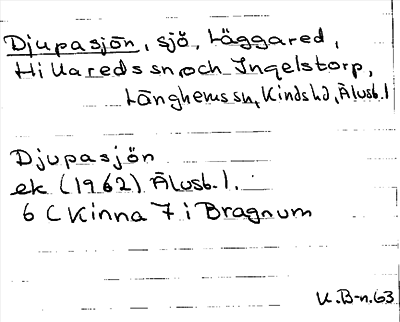 Djupasjön, sjö, Läggared,
Hillareds sn, och Ingelstorp,
Länghems sn, Kinds hd, Älvsb. l
Djupasjön
ek (1962) Älvsb. l.
6 C Kinna 7 i Bragnum
K. B-n. 63